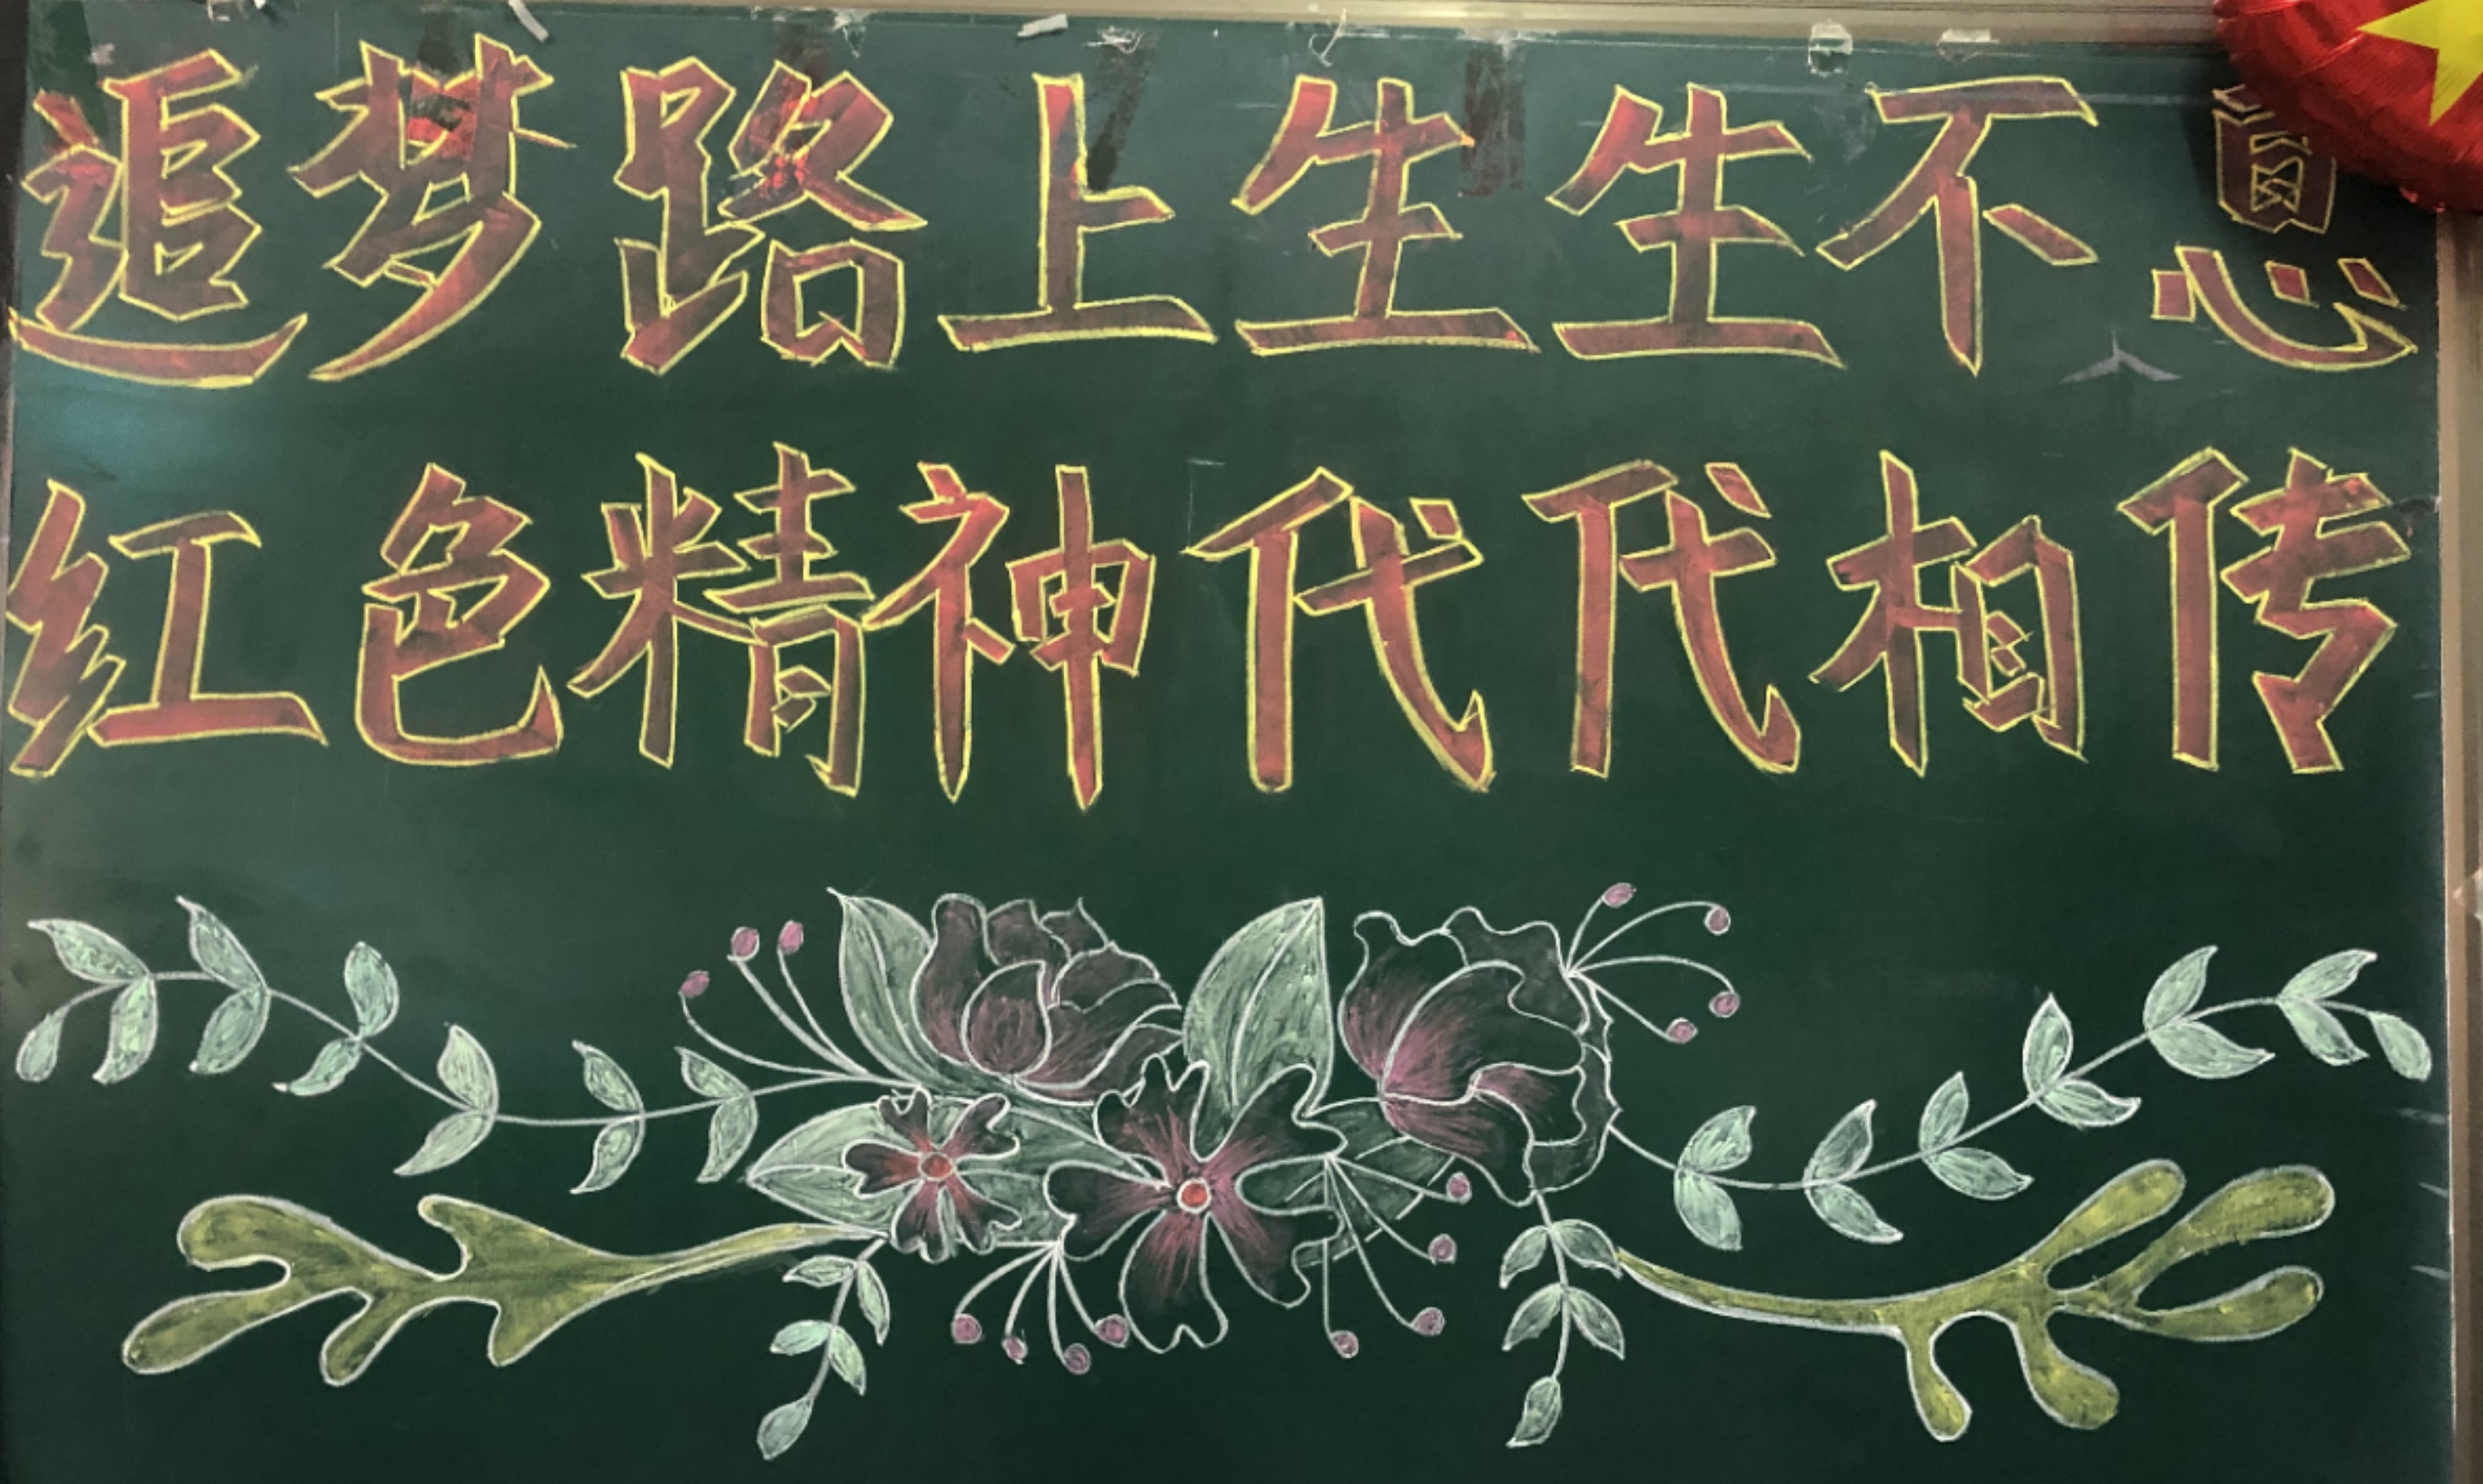 追梦路上生生不息
红色精神代代相传